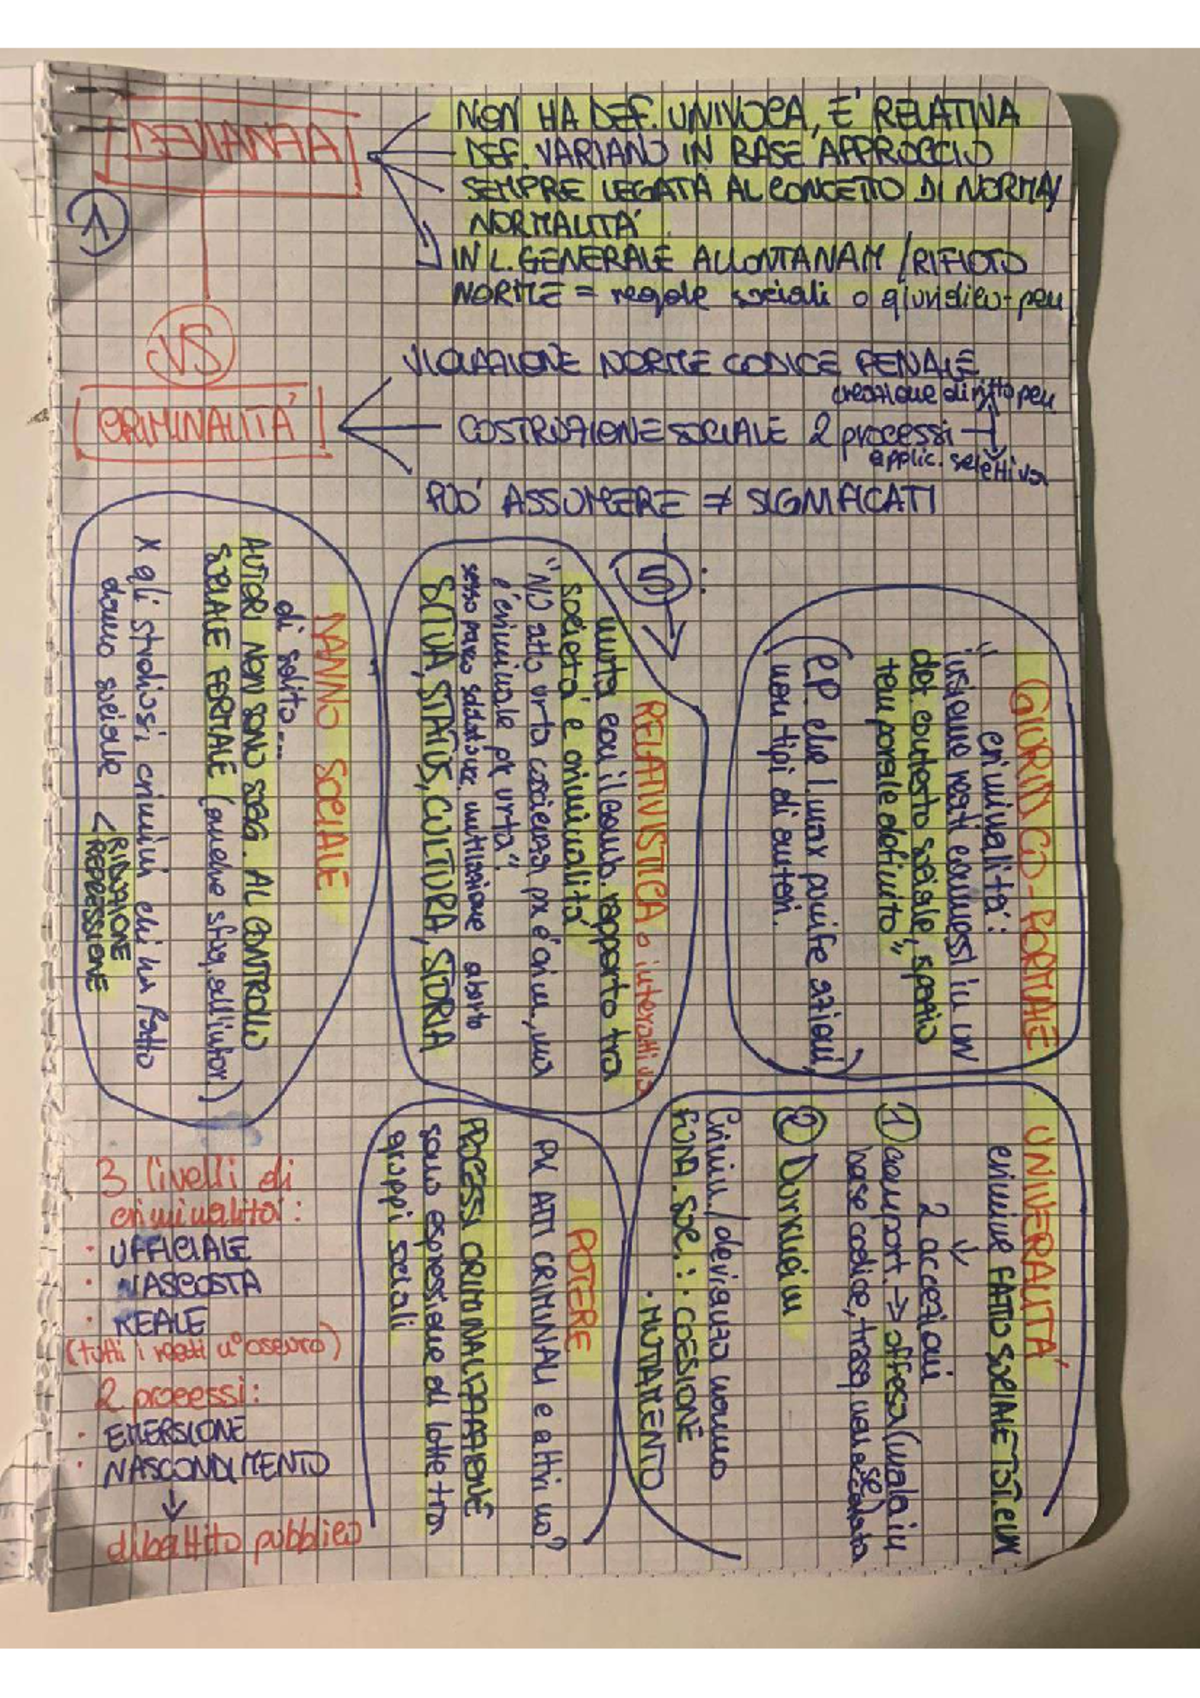 DEVIANZA
1
NON HA DEF. UNIVOCA, E' RELATIVA
DEF. VARIANO IN BASE APPROCCIO
SEMPRE LEGATA AL CONCETTO DI NORMA/
NORMALITÀ
IN L. GENERALE ALLONTANAM/RIFIUTO
NORME = regole sociali o giuridico-pen
VS
CRIMINALITÀ
VIOLAZIONE NORME CODICE PENALE
COSTRUZIONE SOCIALE 2 processi
creazione diritto pen
applic. selettiva
PUÒ ASSUMERE ≠ SIGNIFICATI
5:
GIURIDICO-FORMALE
"criminalità:
insieme reati commessi in un
det. contesto sociale, spazio
temporale definito"
(C.P. che l. max punisce azioni,
non tipi di autori.
RELATIVISTICA o interattiva
muta con il camb. rapporto tra
società e criminalità
"NO atto urta coscienza pk è crim, ma
è criminale pk urta"
sesso mutilazione aborto
STATUS, CULTURA, STORIA
DANNO SOCIALE
di solito...
AUTORI NON SONO SOGG. AL CONTROLLO
SOCIALE FORMALE (anche sfug. all'inter.)
X gli studiosi, crimini chi ha fatto
danno sociale < RIDUZIONE
REPRESSIONE
UNIVERALITÀ
crimine FATTO SOCIALE TOT. e UN
2 accezioni
1 comport. → offesa (anche in
base codice, trasg. non è
2 Durkheim
Crimin/devianza hanno
FUNZ. SOC.: · COESIONE
· MUTAMENTO
POTERE
PK ATTI CRIMINALI e altri no?
PROCESSI CRIMINALIZZAZIONE
sono espressione di lotte tra
gruppi sociali
3 livelli di
criminalità:
· UFFICIALE
· NASCOSTA
· REALE
(tutti i reati n° oscuro)
2 processi:
· EMERSIONE
· NASCONDIMENTO
dibattito pubblico